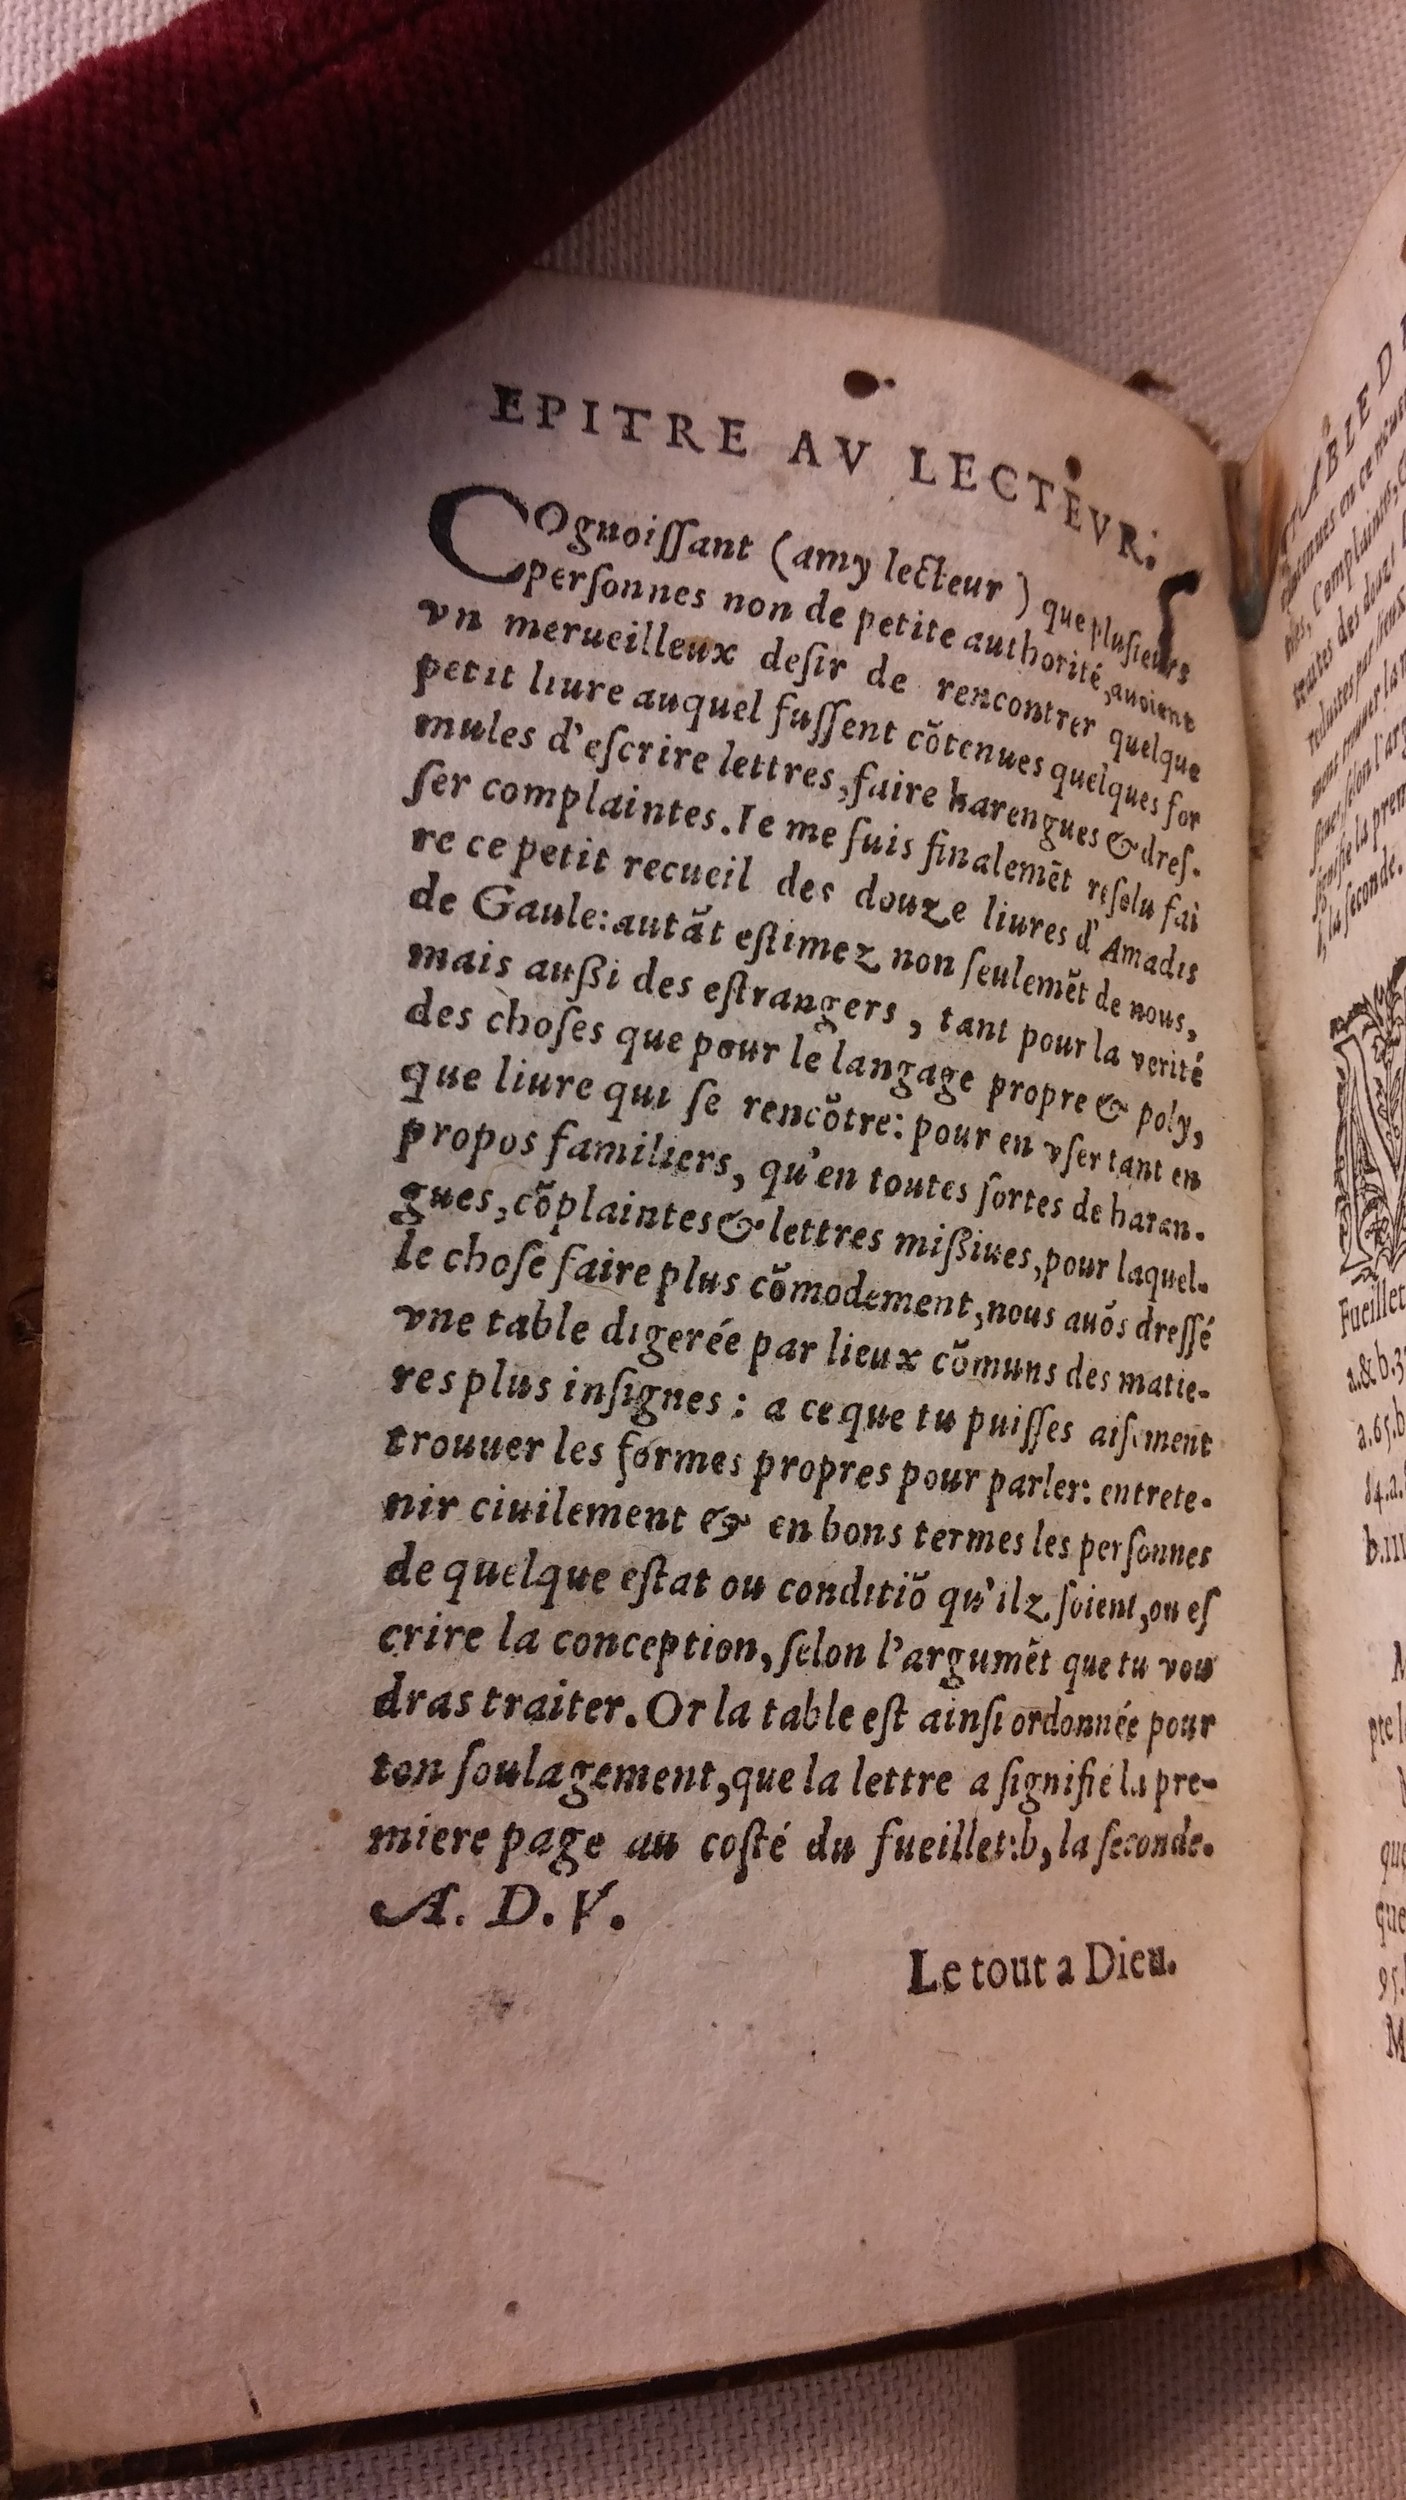 EPITRE AV LECTEVR.
COgnoiſſant (amy lecteur) que pluſieurs
perſonnes non de petite authorité, auoient
vn merueilleux deſir de rencontrer quelque
petit liure auquel fuſſent cõtenues quelques for
mules d'eſcrire lettres, faire harengues & dreſ-
ſer complaintes. Ie me ſuis finalemẽt reſolu fai
re ce petit recueil des douze liures d'Amadis
de Gaule: autãt eſtimez non ſeulemẽt de nous,
mais auſſi des eſtrangers, tant pour la verité
des choſes que pour le langage propre & poly,
que liure qui ſe rencõtre: pour en vſer tant en
propos familiers, qu'en toutes ſortes de haran-
gues, cõplaintes & lettres miſſiues, pour laquel-
le choſe faire plus cõmodement, nous auõs dreſſé
vne table digerée par lieux cõmuns des matie-
res plus inſignes: a ce que tu puiſſes aiſement
trouuer les formes propres pour parler: entrete-
nir ciuilement & en bons termes les perſonnes
de quelque eſtat ou conditiõ qu'ilz ſoient, ou eſ
crire la conception, ſelon l'argumẽt que tu vou
dras traiter. Or la table eſt ainſi ordonnée pour
ton ſoulagement, que la lettre a ſignifie la pre-
miere page au coſté du fueillet: b, la ſeconde.
A. D. V.
Le tout a Dieu.
TABLE D
contenues en ce
Complaintes,
des douze
ment trouuer la
ſelon l'arg
ſignifie la prem
b, la ſeconde.
Fueillet
a.&b.3
a.65.b
84.a.
b.111
pte l
que
que
95.
M